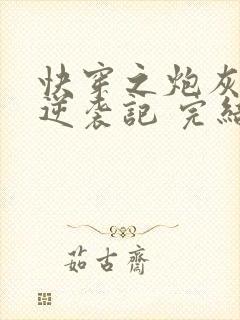 快穿之炮灰
逆袭記 完結
茹古齋